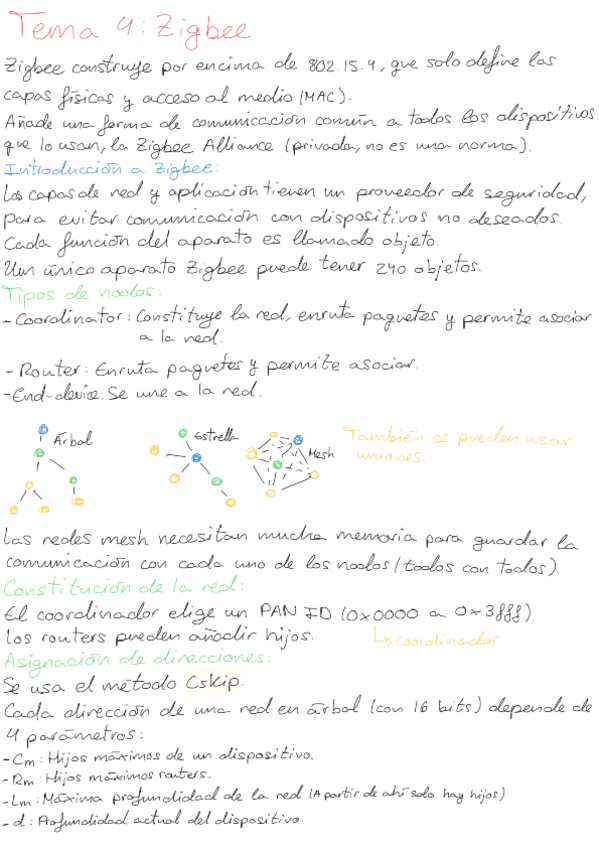 Tema 4: Zigbee
Zigbee construye por encima de 802.15.4, que solo define las
capas físicas y acceso al medio (MAC).
Añade una forma de comunicación común a todos los dispositivos
que lo usan, la Zigbee Alliance (privada, no es una norma).
Introducción a Zigbee:
Las capas de red y aplicación tienen un proveedor de seguridad,
para evitar comunicación con dispositivos no deseados.
Cada función del aparato es llamado objeto.
Un único aparato Zigbee puede tener 240 objetos.
Tipos de nodos:
- Coordinator: Constituye la red, enruta paquetes y permite asociar
a la red.
- Router: Enruta paquetes y permite asociar.
- End-device: Se une a la red.
Árbol
Estrella
Mesh
También se pueden usar
uniones.
Las redes mesh necesitan mucha memoria para guardar la
comunicación con cada uno de los nodos (todos con todos).
Constitución de la red:
El coordinador elige un PAN ID (0x0000 a 0x3fff).
Los routers pueden añadir hijos.
↳ Coordinador
Asignación de direcciones:
Se usa el método Cskip.
Cada dirección de una red en árbol (con 16 bits) depende de
4 parámetros:
- Cm: Hijos máximos de un dispositivo.
- Rm: Hijos máximos routers.
- Lm: Máxima profundidad de la red (A partir de ahí solo hay hijos).
- d: Profundidad actual del dispositivo.